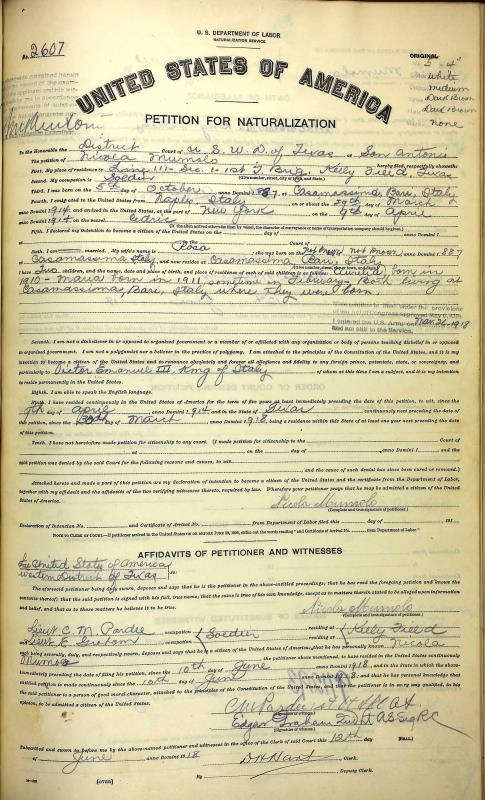 U. S. DEPARTMENT OF LABOR
NATURALIZATION SERVICE
No. 2607
ORIGINAL
UNITED STATES OF AMERICA
5 - 4"
White
medium
Dark Brown
Dark Brown
none
PETITION FOR NATURALIZATION
To the Honorable the District Court of U. S. W. D. of Texas at San Antonio
The petition of Nicola Mumolo hereby filed, respectfully showeth:
First. My place of residence is Kelly Field, Texas
Second. My occupation is Soldier
Third. I was born on the 5th day of October, anno Domini 1887, at Casamassima, Bari, Italy
Fourth. I emigrated to the United States from Naples, Italy on or about the 29th day of March
anno Domini 1914, and arrived in the United States, at the port of New York on the 9th day of April
anno Domini 1914 on the vessel
(If the alien arrived otherwise than by vessel, the character of conveyance or name of transportation company should be given.)
Fifth. I declared my intention to become a citizen of the United States on the day of , anno Domini 1
at , in the Court of
Sixth. I am married. My wife's name is Rosa; she was born on the not known not known 1887
at Casamassima Italy, and now resides at Casamassima Bari, Italy
I have two children, and the name, date and place of birth, and place of residence of each of said children is as follows: born in
1910 - Maria born in 1911, sometime in Febuary - Both living at
Casamassima, Bari, Italy where they were born.
Mar. 26, 1918
Seventh. I am not a disbeliever in or opposed to organized government or a member of or affiliated with any organization or body of persons teaching disbelief in or opposed
to organized government. I am not a polygamist nor a believer in the practice of polygamy. I am attached to the principles of the Constitution of the United States, and it is my
intention to become a citizen of the United States and to renounce absolutely and forever all allegiance and fidelity to any foreign prince, potentate, state, or sovereignty, and
particularly to Victor Emanuel III, King of Italy of whom at this time I am a subject, and it is my intention
to reside permanently in the United States.
Eighth. I am able to speak the English language.
Ninth. I have resided continuously in the United States of America for the term of five years at least immediately preceding the date of this petition, to wit, since the
9th day of April, anno Domini 1914 and in the State of Texas continuously next preceding the date of
this petition, since the day of March, anno Domini 1918, being a residence within this State of at least one year next preceding the date
of this petition.
Tenth. I have not heretofore made petition for citizenship to any court. (I made petition for citizenship to the Court of
at on the day of , anno Domini 1 and the
said petition was denied by the said Court for the following reasons and causes, to wit,
and the cause of such denial has since been cured or removed.)
Attached hereto and made a part of this petition are my declaration of intention to become a citizen of the United States and the certificate from the Department of Labor,
together with my affidavit and the affidavits of the two verifying witnesses thereto, required by law. Wherefore your petitioner prays that he may be admitted a citizen of the
United States of America.
Nicola Mumolo
(Complete and true signature of petitioner.)
Declaration of Intention No. and Certificate of Arrival No. from Department of Labor filed this day of , 191
AFFIDAVITS OF PETITIONER AND WITNESSES
United States of America
Western District of Texas ss:
The aforesaid petitioner being duly sworn, deposes and says that he is the petitioner in the above-entitled proceedings; that he has read the foregoing petition and knows the
contents thereof; that the said petition is signed with his full, true name; that the same is true of his own knowledge, except as to matters therein stated to be alleged upon information
and belief, and that as to those matters he believes it to be true.
Nicola Mumolo
(Complete and true signature of petitioner.)
Lieut C. M. Pardue, occupation Soldier, residing at Kelly Field
Lieut E. Graham, occupation , residing at
each being severally, duly, and respectively sworn, deposes and says that he is a citizen of the United States of America; that he has personally known Nicola
Mumolo, the petitioner above mentioned, to have resided in the United States continuously
immediately preceding the date of filing his petition, since the 10th day of June, anno Domini 1918 and in the State in which the above-
entitled petition is made continuously since the 10th day of June, 1918, and that he has personal knowledge that
the said petitioner is a person of good moral character, attached to the principles of the Constitution of the United States, and that the petitioner is in every way qualified, in his
opinion, to be admitted a citizen of the United States.
(Signature of witness.)
Edgar Graham
(Signature of witness.)
Subscribed and sworn to before me by the above-named petitioner and witnesses in the office of the Clerk of said Court this 12th day
of June, anno Domini 1918
[SEAL.]
D H Hart, Clerk.
By , Deputy Clerk.
[OVER]